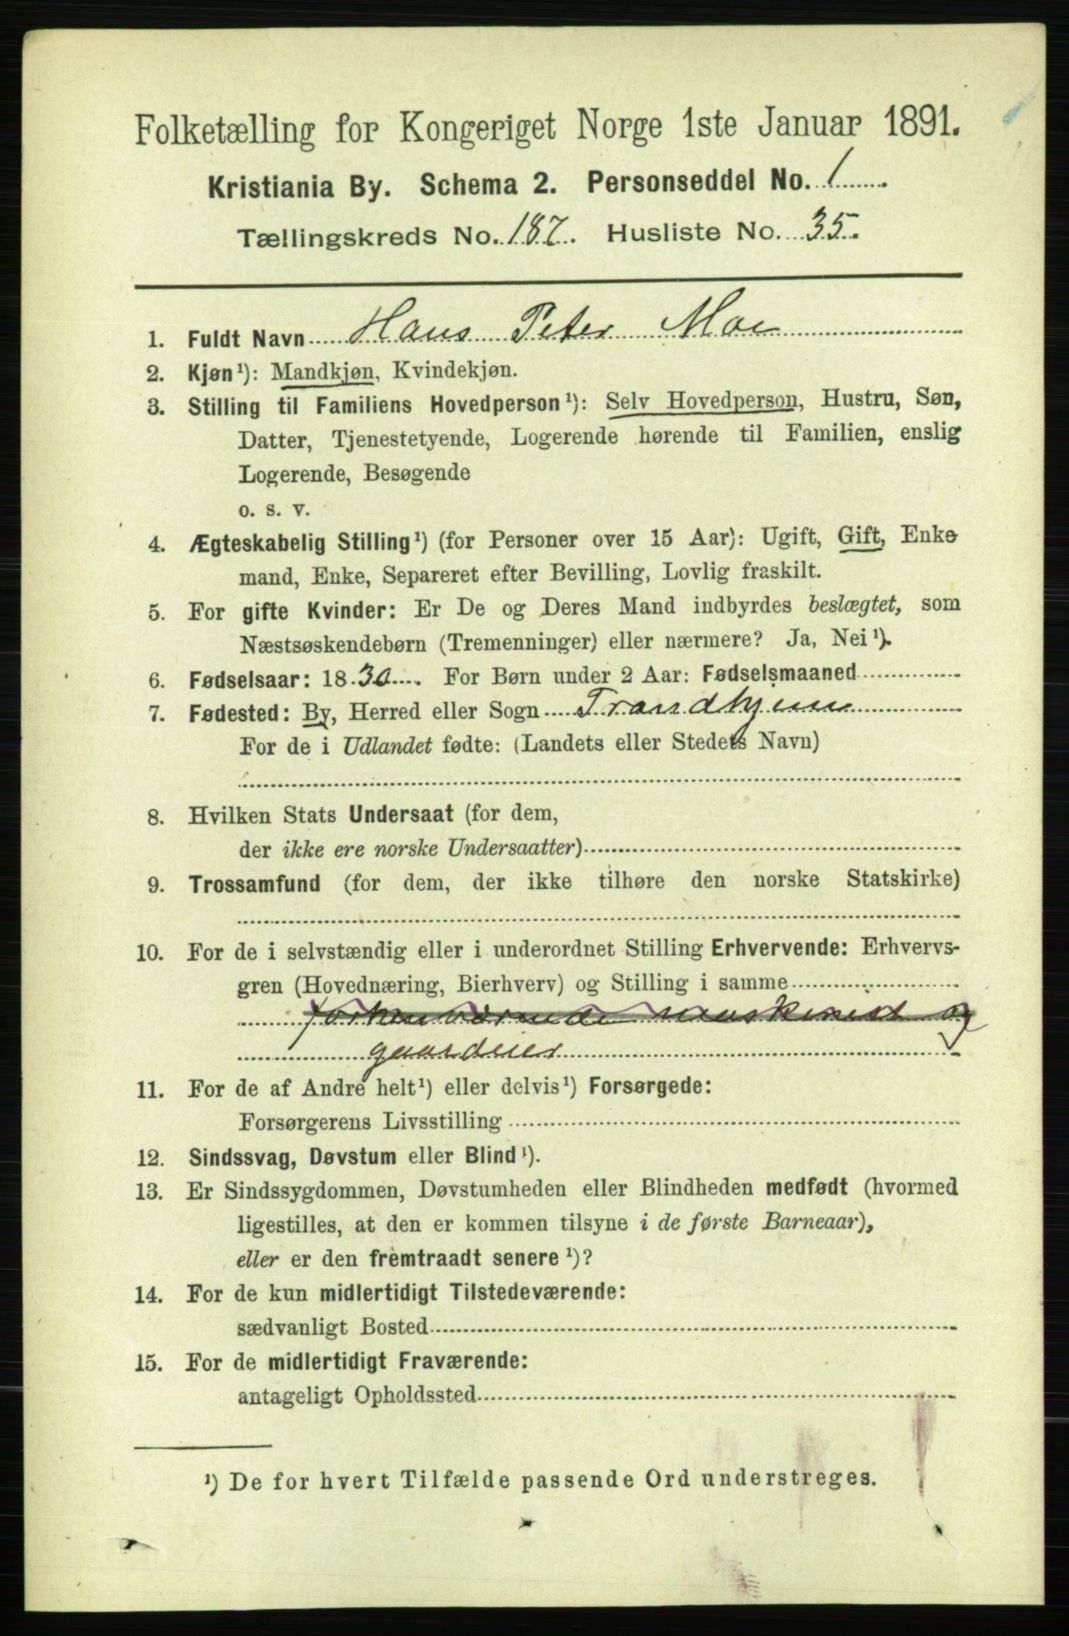 Folketælling for Kongeriget Norge 1ste Januar 1891.
Kristiania By. Schema 2. Personseddel No. 1
Tællingskreds No. 187. Husliste No. 35.
1. Fuldt Navn Hans Peter Moe
2. Kjøn¹): Mandkjøn, Kvindekjøn.
3. Stilling til Familiens Hovedperson¹): Selv Hovedperson, Hustru, Søn,
Datter, Tjenestetyende, Logerende hørende til Familien, enslig
Logerende, Besøgende
o. s. v.
4. Ægteskabelig Stilling¹) (for Personer over 15 Aar): Ugift, Gift, Enke-
mand, Enke, Separeret efter Bevilling, Lovlig fraskilt.
5. For gifte Kvinder: Er De og Deres Mand indbyrdes beslægtet, som
Næstsøskendebørn (Tremenninger) eller nærmere? Ja, Nei¹).
6. Fødselsaar: 1830. For Børn under 2 Aar: Fødselsmaaned
7. Fødested: By, Herred eller Sogn Trondhjem
For de i Udlandet fødte: (Landets eller Stedets Navn)
8. Hvilken Stats Undersaat (for dem,
der ikke ere norske Undersaatter)
9. Trossamfund (for dem, der ikke tilhøre den norske Statskirke)
10. For de i selvstændig eller i underordnet Stilling Erhvervende: Erhvervs-
gren (Hovednæring, Bierhverv) og Stilling i samme
forhenværende maskinist og
gaardeier
11. For de af Andre helt¹) eller delvis¹) Forsørgede:
Forsørgerens Livsstilling
12. Sindssvag, Døvstum eller Blind¹).
13. Er Sindssygdommen, Døvstumheden eller Blindheden medfødt (hvormed
ligestilles, at den er kommen tilsyne i de første Barneaar),
eller er den fremtraadt senere¹)?
14. For de kun midlertidigt Tilstedeværende:
sædvanligt Bosted
15. For de midlertidigt Fraværende:
antageligt Opholdssted
¹) De for hvert Tilfælde passende Ord understreges.